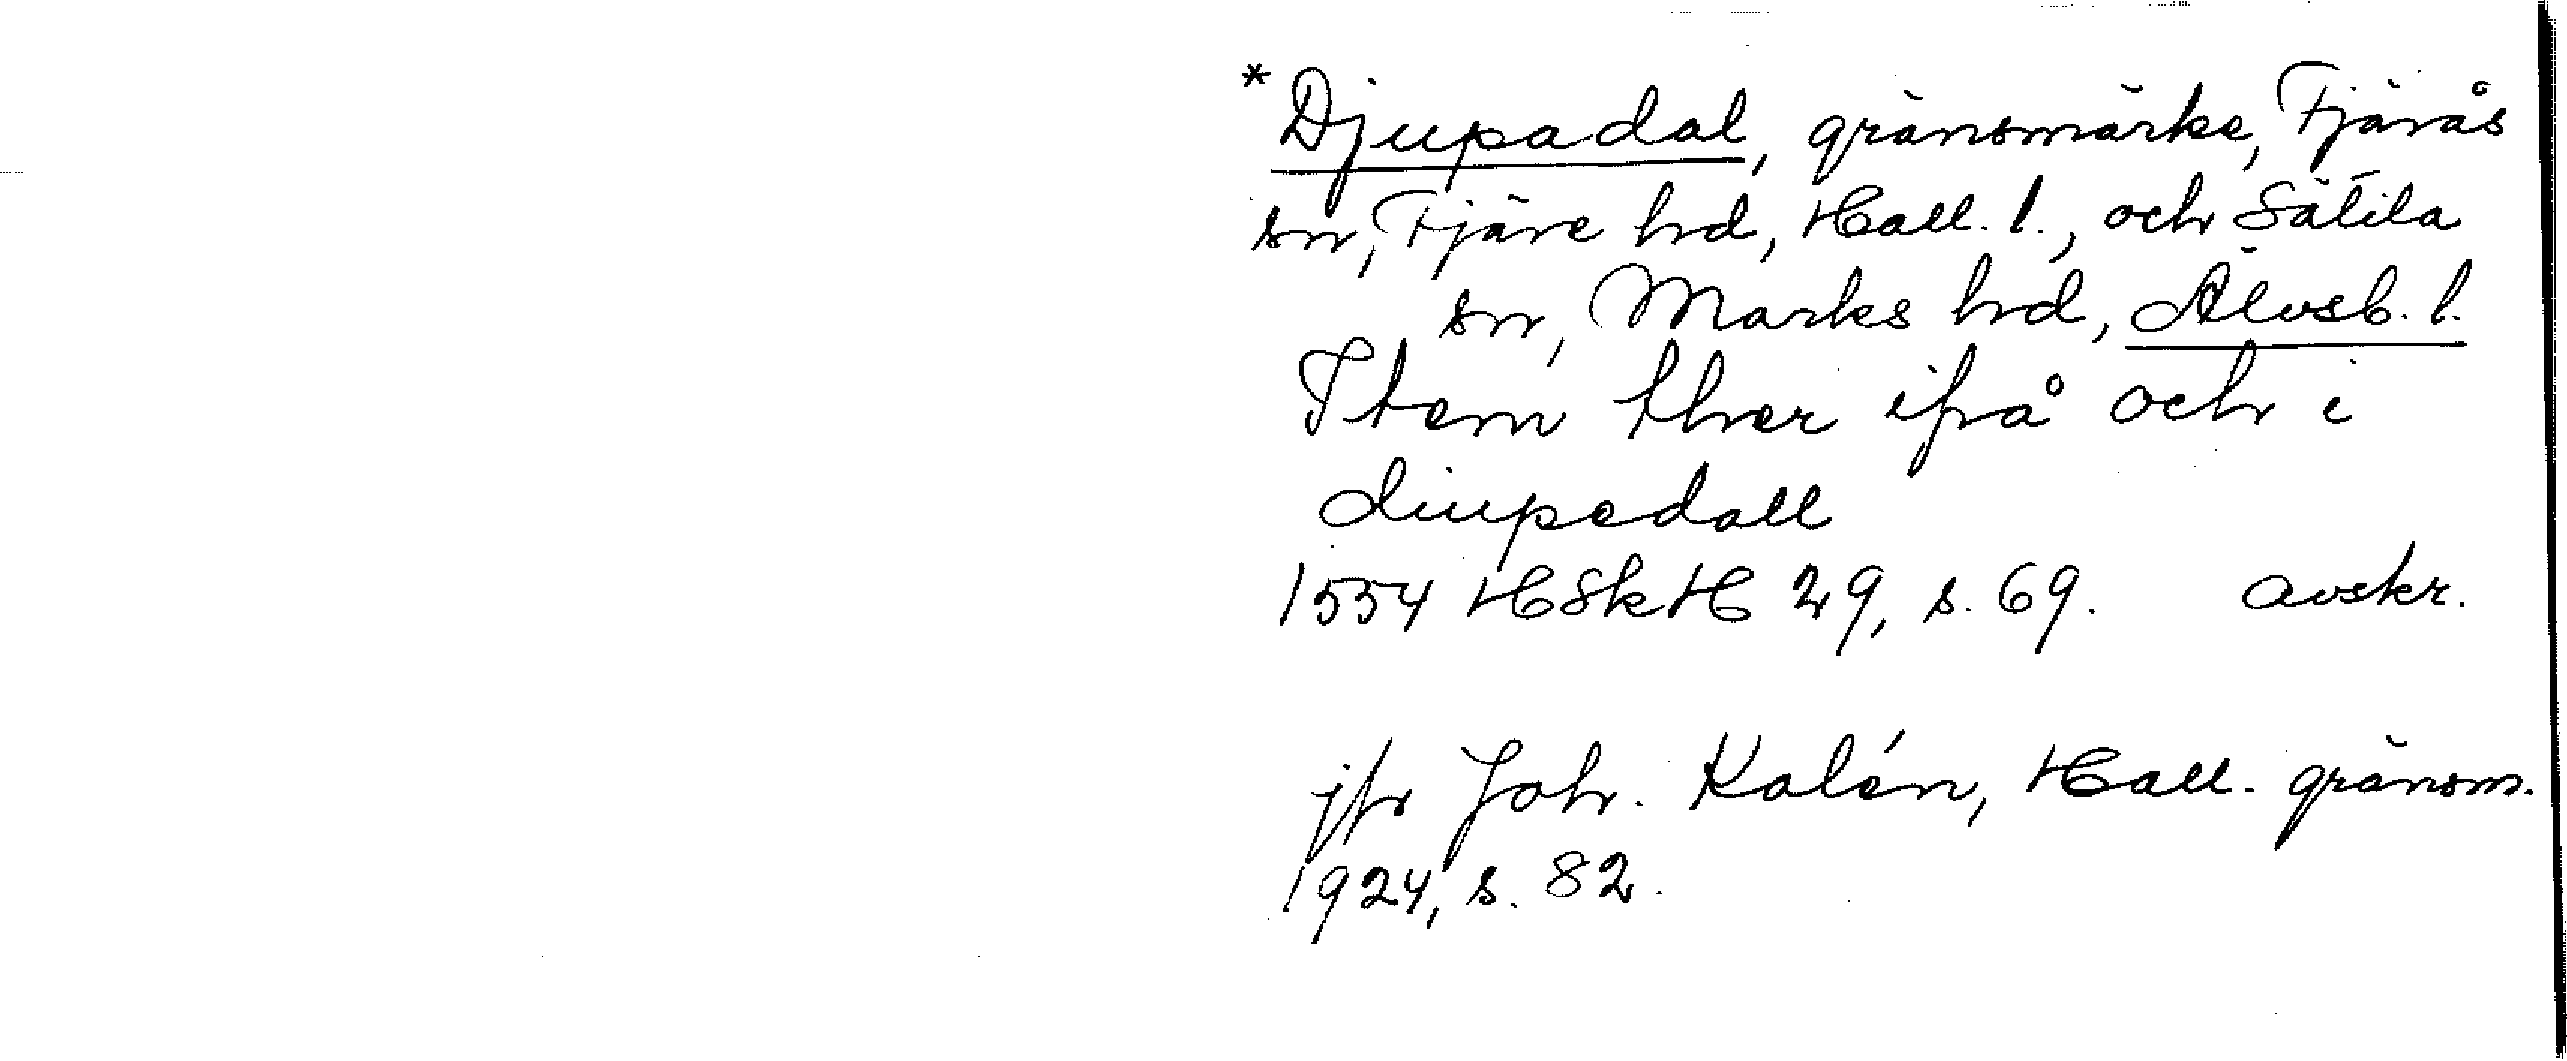 *Djupadal, gränsmärke, Fjärås
sn, Fjäre hd, Hall. l., och Sätila
sn, Marks hd, Älvsb. l.
Item ther ifrå och i
diupedall
1554 HSkH 29, s. 69. avskr.
jfr Joh. Kalén, Hall. gränsm.
1924, s. 82.